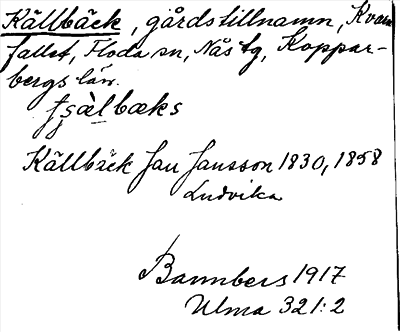 Källbäck, gårdstillnamn, Kvarn
fallet, Floda sn, Nås tg, Koppar-
bergs län.
fʂàlbæks
Källbäck Jan Jansson 1830, 1858
Ludvika
Bannbers 1917
Ulma 321:2